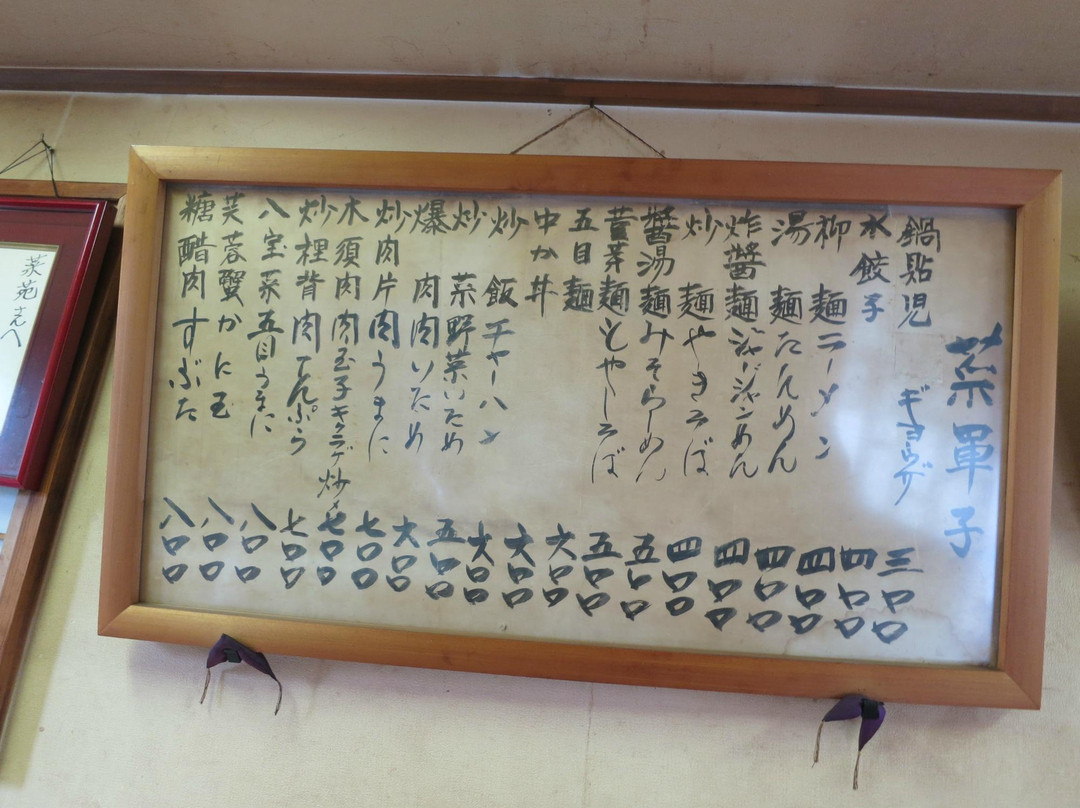 菜單子
鍋貼児 ギョウザ 三〇〇
水餃子 四〇〇
柳麺 ラーメン 四〇〇
湯麺 たんめん 四〇〇
炸醬麺 ジャージャンめん 四〇〇
炒麺 やきそば 四〇〇
醬湯麺 みそらーめん 五〇〇
菫菜麺 もやしそば 五〇〇
五目麺 六〇〇
中か丼 六〇〇
炒飯 チャーハン 六〇〇
炒菜 野菜いため 五〇〇
爆肉 肉いため 六〇〇
炒肉片 肉うまに 七〇〇
木須肉 肉玉子キクラゲ炒メ 七〇〇
炒裡背 肉てんぷら 七〇〇
八宝菜 五目うまに 八〇〇
芙蓉蟹 かに玉 八〇〇
糖醋肉 すぶた 八〇〇
菜苑さんへ